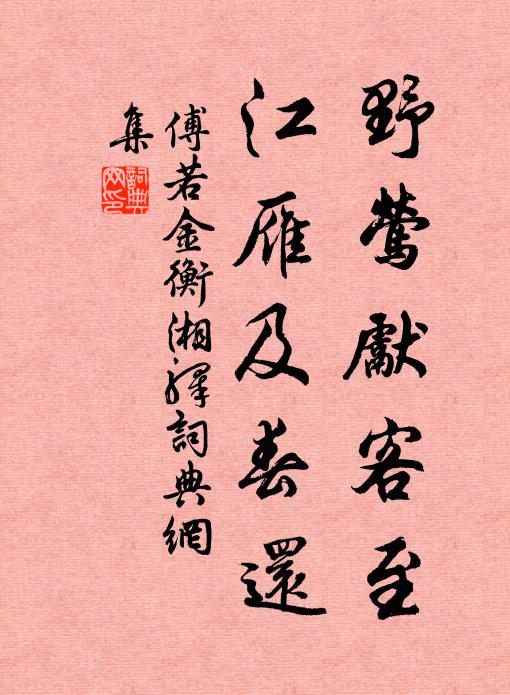 野鶯獻客至
江雁及春還
傅若金衡湘驛詞典網
集
詞典
网印